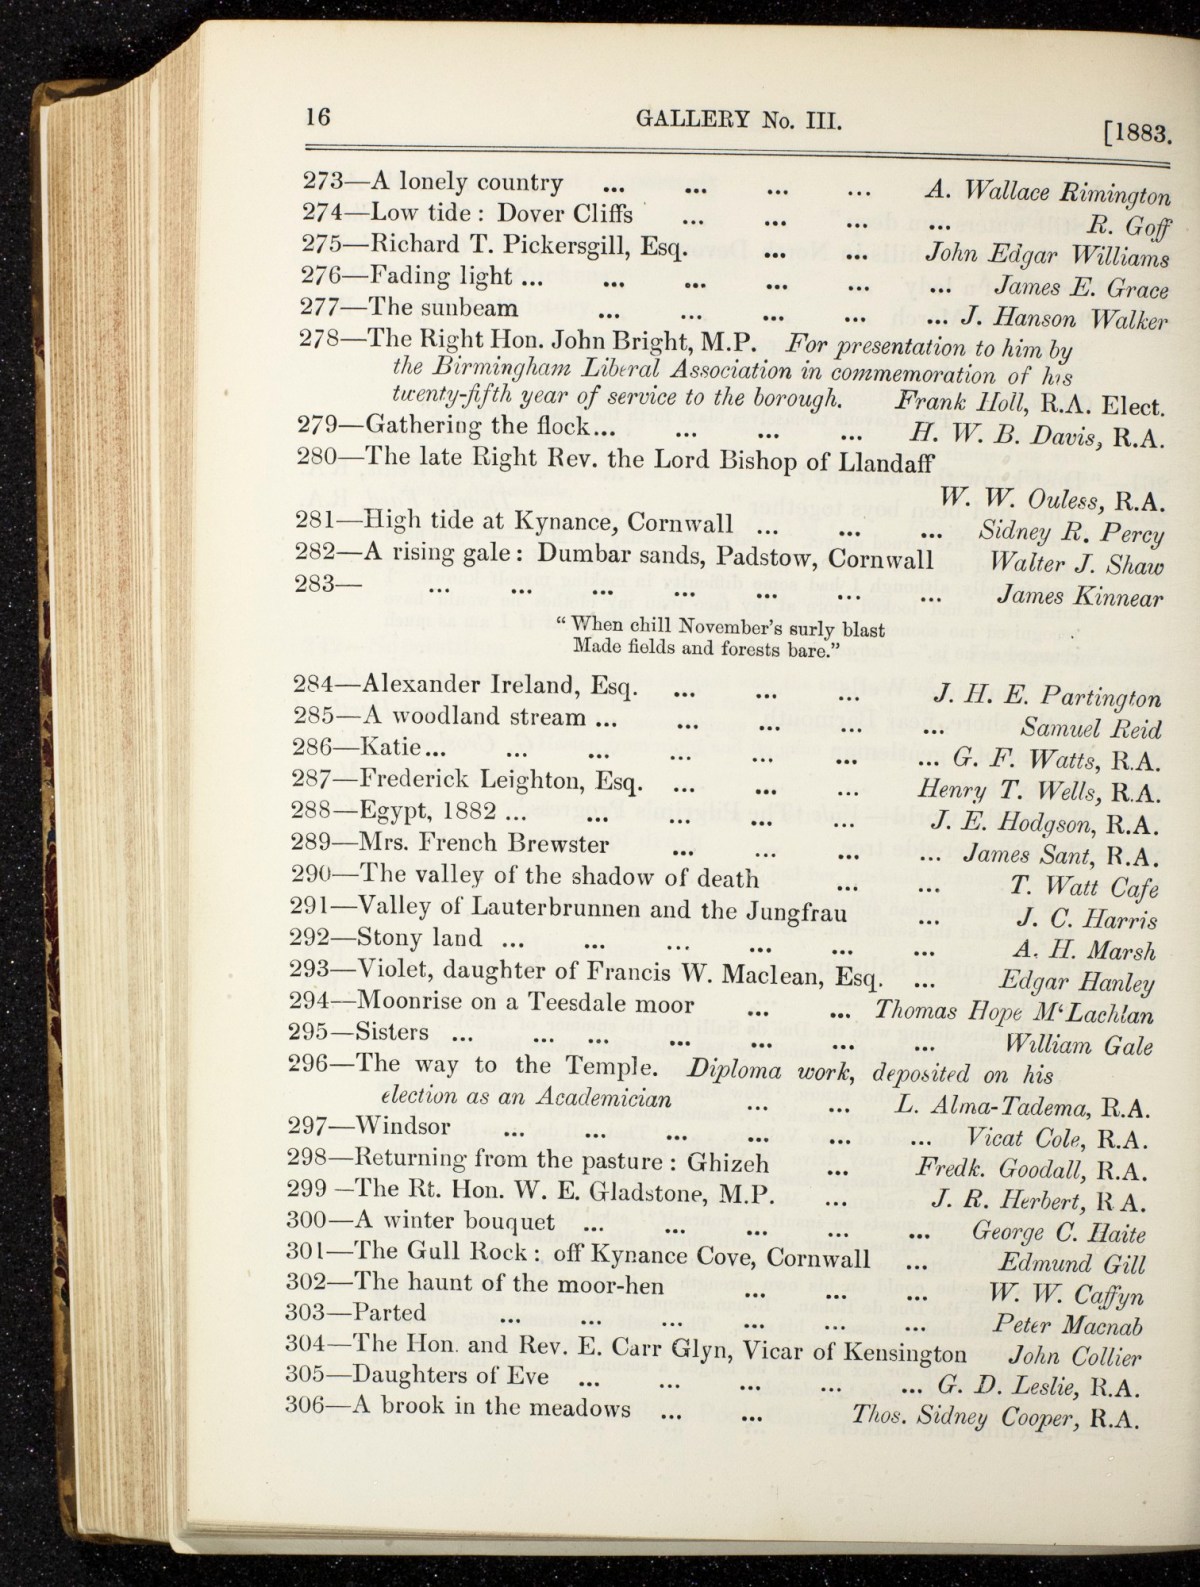 16 GALLERY No. III. [1883.
273—A lonely country ... ... ... ... A. Wallace Rimington
274—Low tide : Dover Cliffs ... ... ... ... R. Goff
275—Richard T. Pickersgill, Esq. ... ... John Edgar Williams
276—Fading light ... ... ... ... ... ... James E. Grace
277—The sunbeam ... ... ... ... ... J. Hanson Walker
278—The Right Hon. John Bright, M.P. For presentation to him by
the Birmingham Liberal Association in commemoration of his
twenty-fifth year of service to the borough. Frank Holl, R.A. Elect.
279—Gathering the flock... ... ... ... H. W. B. Davis, R.A.
280—The late Right Rev. the Lord Bishop of Llandaff
W. W. Ouless, R.A.
281—High tide at Kynance, Cornwall ... ... ... Sidney R. Percy
282—A rising gale : Dumbar sands, Padstow, Cornwall Walter J. Shaw
283— ... ... ... ... ... ... ... James Kinnear
“ When chill November’s surly blast
Made fields and forests bare.”
284—Alexander Ireland, Esq. ... ... ... J. H. E. Partington
285—A woodland stream ... ... ... ... ... Samuel Reid
286—Katie... ... ... ... ... ... ... G. F. Watts, R.A.
287—Frederick Leighton, Esq. ... ... ... Henry T. Wells, R.A.
288—Egypt, 1882 ... ... ... ... ... J. E. Hodgson, R.A.
289—Mrs. French Brewster ... ... ... ... James Sant, R.A.
290—The valley of the shadow of death ... ... T. Watt Cafe
291—Valley of Lauterbrunnen and the Jungfrau ... J. C. Harris
292—Stony land ... ... ... ... ... ... A. H. Marsh
293—Violet, daughter of Francis W. Maclean, Esq. ... Edgar Hanley
294—Moonrise on a Teesdale moor ... ... Thomas Hope M‘Lachlan
295—Sisters ... ... ... ... ... ... ... William Gale
296—The way to the Temple. Diploma work, deposited on his
election as an Academician ... ... L. Alma-Tadema, R.A.
297—Windsor ... ... ... ... ... ... Vicat Cole, R.A.
298—Returning from the pasture : Ghizeh ... Fredk. Goodall, R.A.
299—The Rt. Hon. W. E. Gladstone, M.P. ... J. R. Herbert, R A.
300—A winter bouquet ... ... ... ... ... George C. Haite
301—The Gull Rock : off Kynance Cove, Cornwall ... Edmund Gill
302—The haunt of the moor-hen ... ... ... W. W. Caffyn
303—Parted ... ... ... ... ... ... Peter Macnab
304—The Hon. and Rev. E. Carr Glyn, Vicar of Kensington John Collier
305—Daughters of Eve ... ... ... ... ... G. D. Leslie, R.A.
306—A brook in the meadows ... ... Thos. Sidney Cooper, R.A.